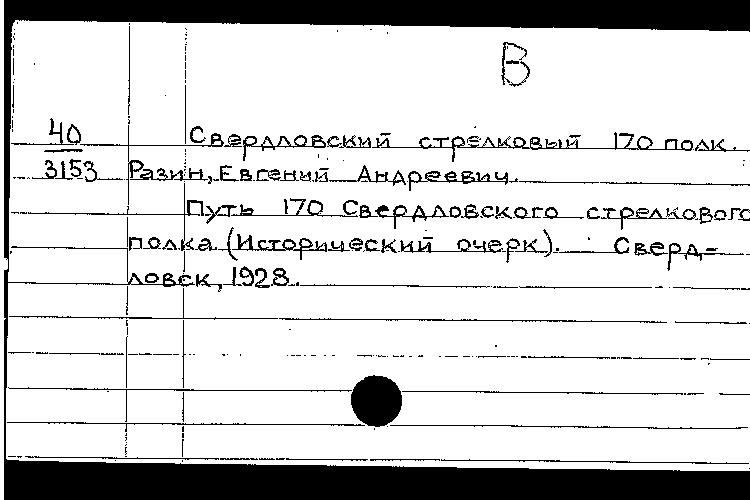 В
40 Свердловский стрелковый 170 полк.
3153 Разин, Евгений Андреевич.
Путь 170 Свердловского стрелкового
полка (Исторический очерк). Сверд-
ловск, 1928.